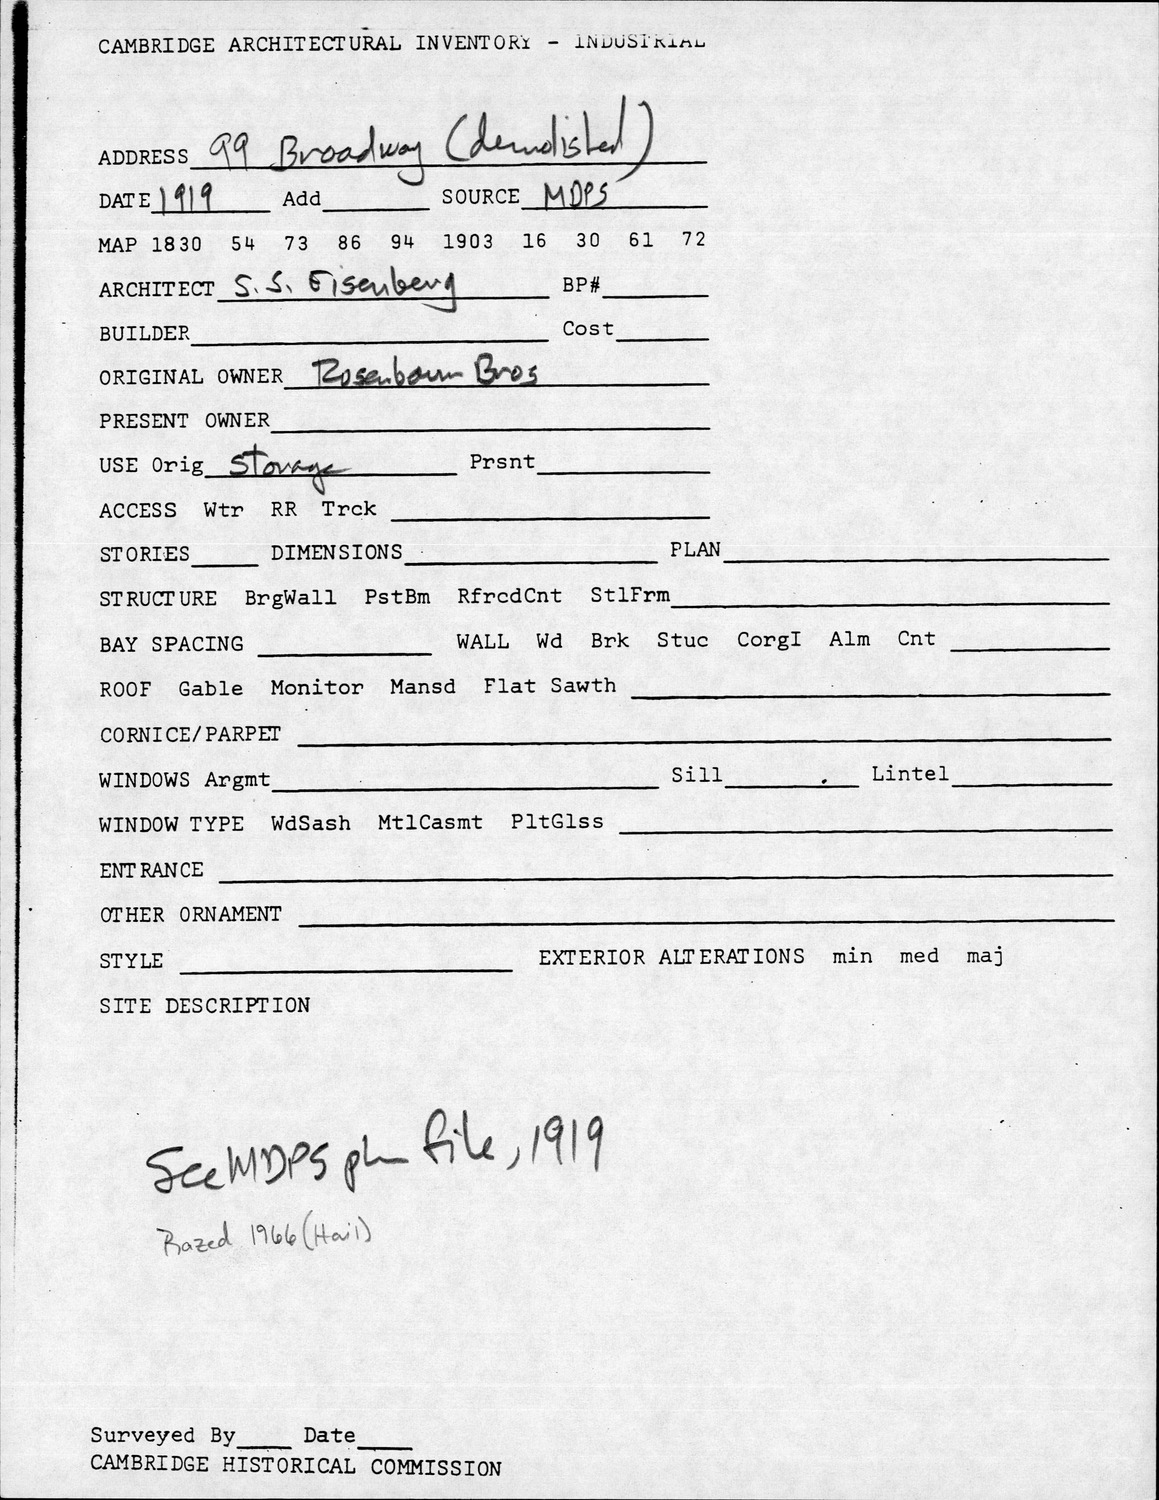 CAMBRIDGE ARCHITECTURAL INVENTORY - INDUSTRIAL
ADDRESS 99 Broadway (demolished)
DATE 1919 Add SOURCE MDPS
MAP 1830 54 73 86 94 1903 16 30 61 72
ARCHITECT S.S. Eisenberg BP#
BUILDER Cost
ORIGINAL OWNER Rosenbaum Bros
PRESENT OWNER
USE Orig Storage Prsnt
ACCESS Wtr RR Trck
STORIES DIMENSIONS PLAN
STRUCTURE BrgWall PstBm RfrcdCnt StlFrm
BAY SPACING WALL Wd Brk Stuc CorgI Alm Cnt
ROOF Gable Monitor Mansd Flat Sawth
CORNICE/PARPET
WINDOWS Argmt Sill Lintel
WINDOW TYPE WdSash MtlCasmt PltGlss
ENTRANCE
OTHER ORNAMENT
STYLE EXTERIOR ALTERATIONS min med maj
SITE DESCRIPTION
See MDPS pln file, 1919
Razed 1966 (Hail)
Surveyed By Date
CAMBRIDGE HISTORICAL COMMISSION